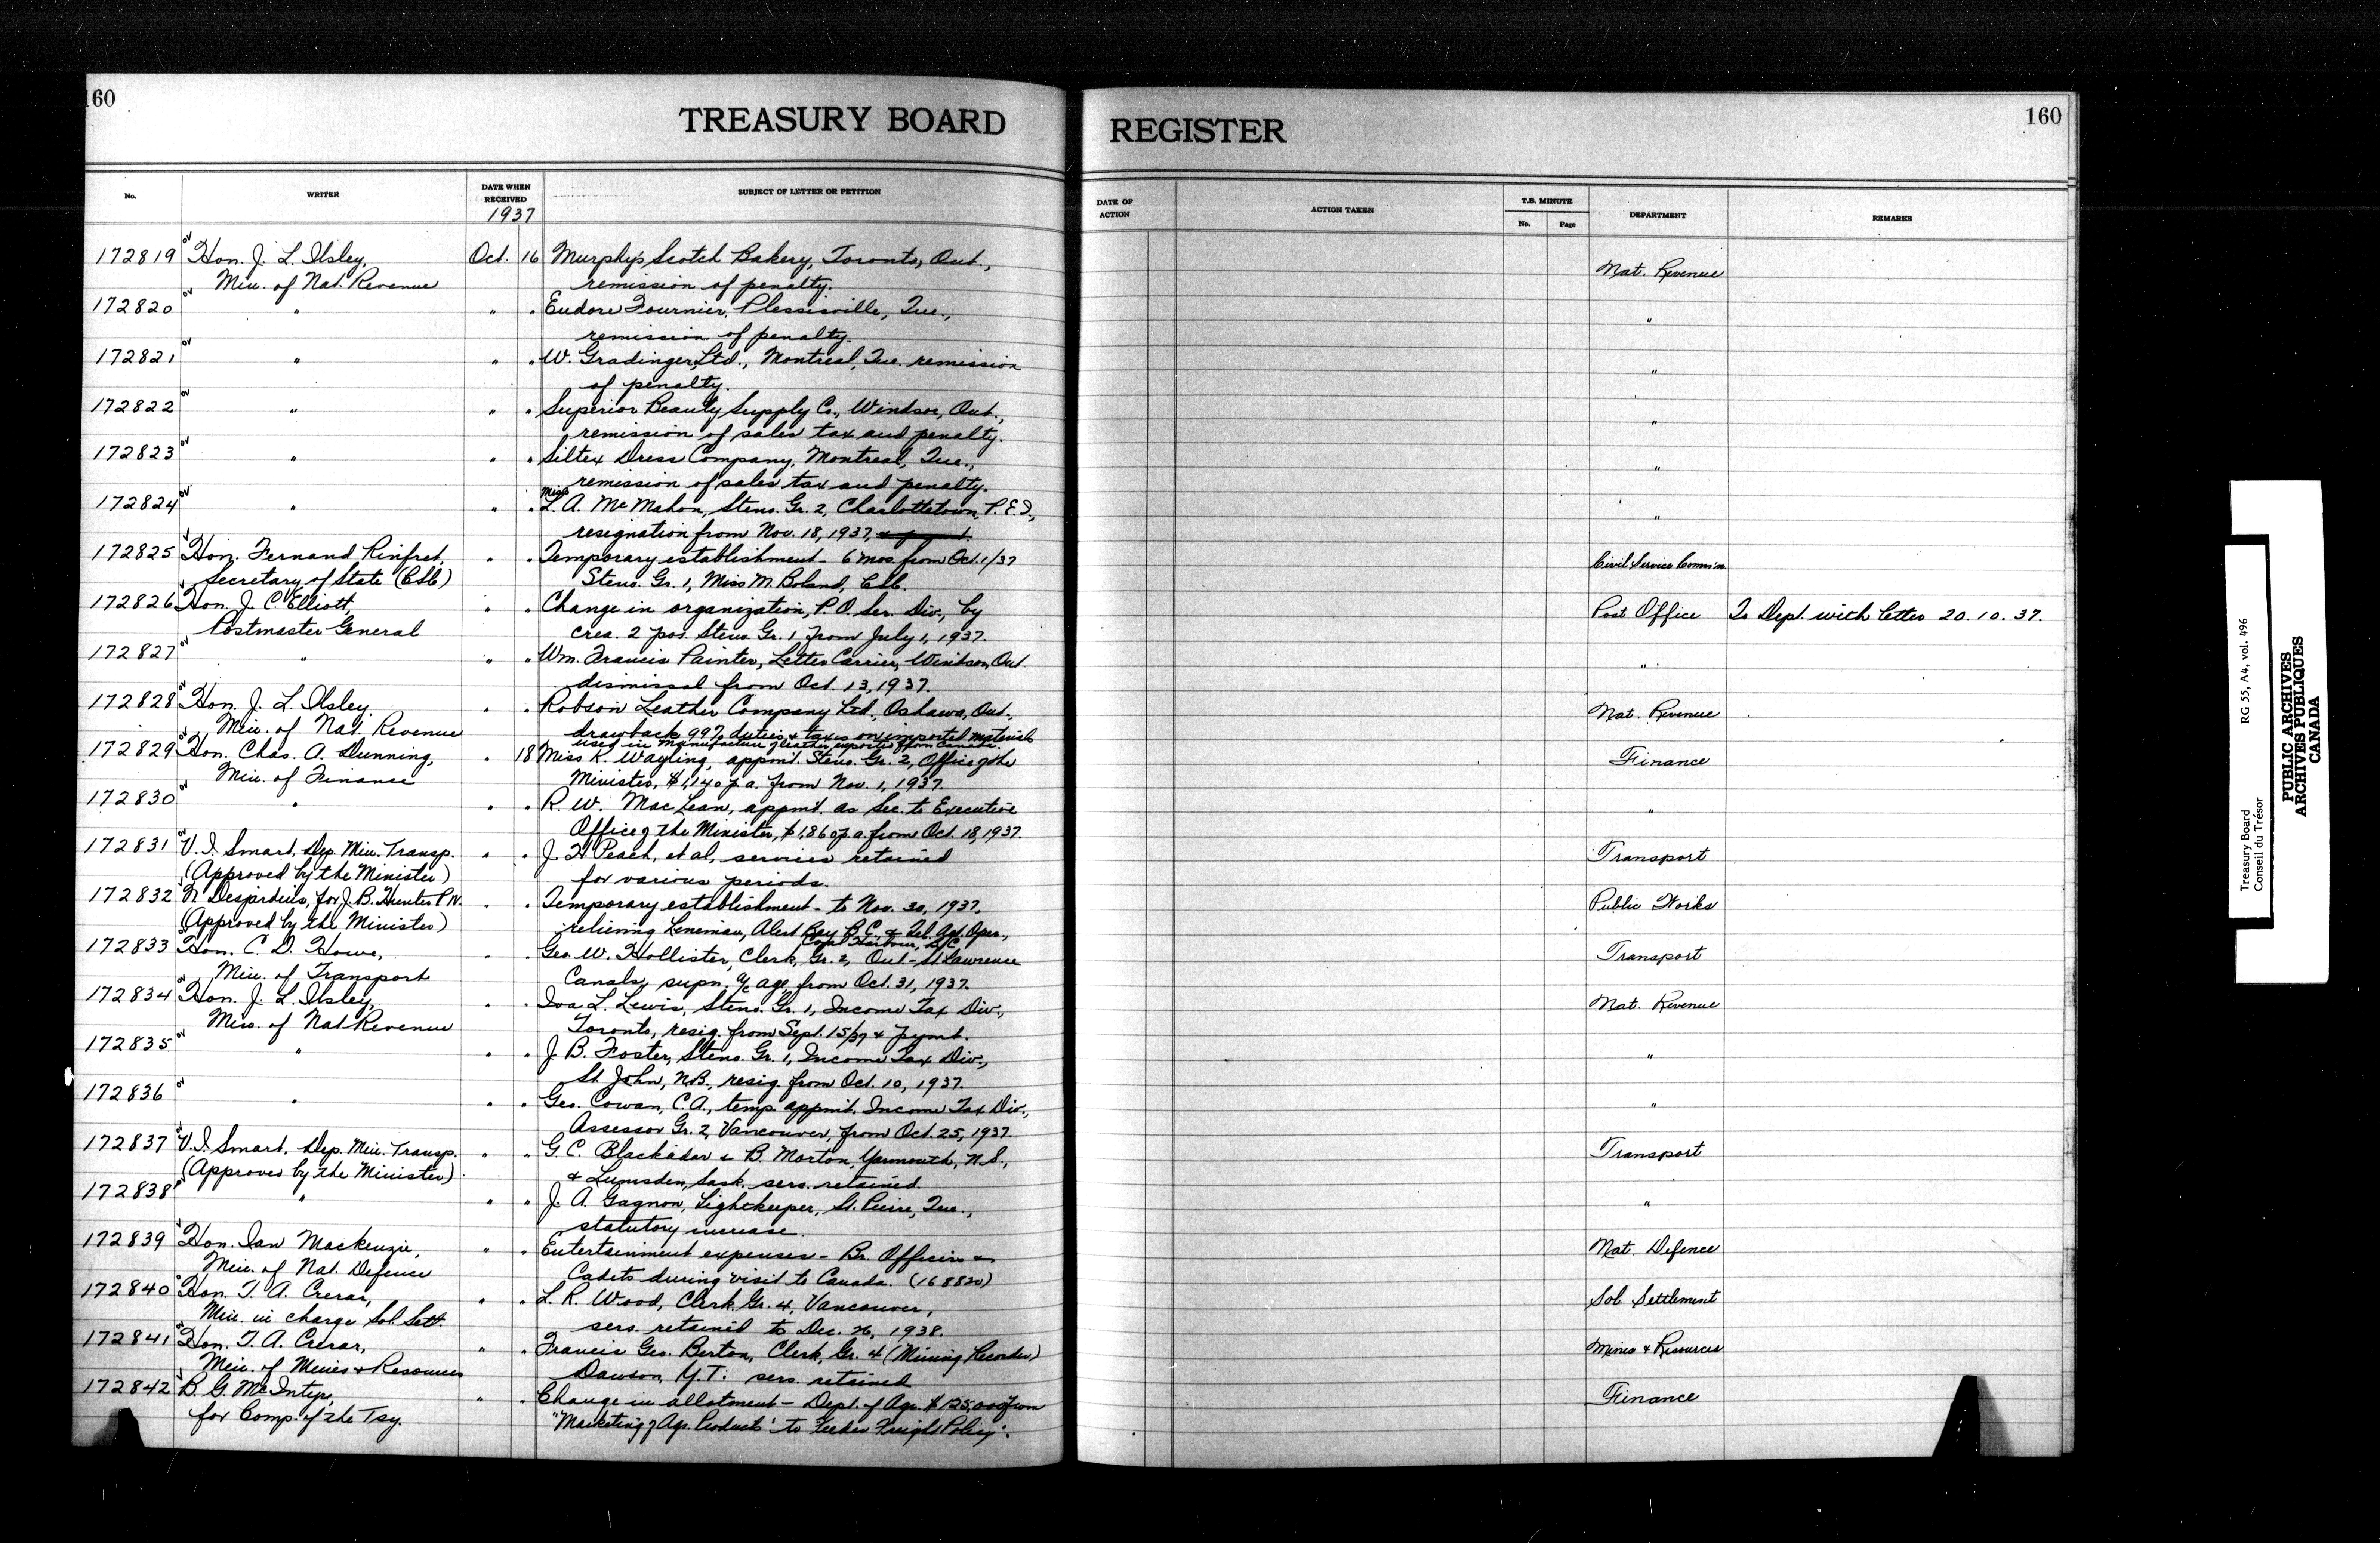 160
TREASURY BOARD REGISTER
160
No. WRITER DATE WHEN RECEIVED SUBJECT OF LETTER OR PETITION DATE OF ACTION ACTION TAKEN T.B. MINUTE No. Page DEPARTMENT REMARKS
1937
172819 Hon. J. L. Ilsley, Oct. 16 Murphy's Scotch Bakery, Toronto, Ont., Nat. Revenue
Min. of Nat. Revenue remission of penalty.
172820 " " " Eudore Fournier, Plessisville, Que., "
remission of penalty.
172821 " " " W. Gradinger, Ltd., Montreal, Que. remission "
of penalty.
172822 " " " Superior Beauty Supply Co., Windsor, Ont., "
remission of sales tax and penalty.
172823 " " " Siltex Dress Company, Montreal, Que., "
remission of sales tax and penalty.
172824 " " " Miss L. A. McMahon, Steno. Gr. 2, Charlottetown, P.E.I., "
resignation from Nov. 18, 1937,
172825 Hon. Fernand Rinfret, " " Temporary establishment - 6 mos. from Oct. 1/37 Civil Service Comm'n
Secretary of State (CSC) Steno. Gr. 1, Miss M. Boland, CSC.
172826 Hon. J. C. Elliott, " " Change in organization, P.O. Ser. Div., by Post Office To Dept. with letter 20.10.37.
Postmaster General crea. 2 pos. Steno. Gr. 1 from July 1, 1937.
172827 " " " Wm. Francis Painter, Letter Carrier, Windsor, Ont. "
dismissal from Oct. 13, 1937.
172828 Hon. J. L. Ilsley, " " Robson Leather Company Ltd., Oshawa, Ont., Nat. Revenue
Min. of Nat. Revenue drawback 99% duties & taxes on imported materials
used in manufacture of leather exported from Canada.
172829 Hon. Chas. A. Dunning, " 18 Miss K. Wayling, appmt. Steno. Gr. 2, Office of the Finance
Min. of Finance Minister, $1,140 p.a. from Nov. 1, 1937.
172830 " " " R. W. MacLean, appmt. as Sec. to Executive "
Office of the Minister, $1,860 p.a. from Oct. 18, 1937.
172831 V. I. Smart, Dep. Min. Transp. " " J. H. Peach, et al, services retained Transport
(Approved by the Minister) for various periods.
172832 N. Desjardins, for J. B. Hunter P.W. " " Temporary establishment - to Nov. 30, 1937, Public Works
(Approved by the Minister) relieving Lineman, Alert Bay B.C. & Tel. Agt. Oper.,
Coal Harbour, B.C.
172833 Hon. C. D. Howe, " " Geo. W. Hollister, Clerk, Gr. 2, Ont.-St. Lawrence Transport
Min. of Transport Canals, supn. a/c age, from Oct. 31, 1937.
172834 Hon. J. L. Ilsley, " " Iva L. Lewis, Steno. Gr. 1, Income Tax Div., Nat. Revenue
Min. of Nat Revenue Toronto, resig. from Sept. 15/37 & pymt.
172835 " " " J. B. Foster, Steno. Gr. 1, Income Tax Div., "
St John, N.B., resig. from Oct. 10, 1937.
172836 " " " Geo. Cowan, C.A., temp. appmt. Income Tax Div., "
Assessor Gr. 2, Vancouver, from Oct. 25, 1937.
172837 V. I. Smart, Dep. Min. Transp. " " G. C. Blackadar & B. Morton, Yarmouth, N.S., Transport
(Approved by the Minister) & Lumsden, Sask. sers. retained.
172838 " " " J. A. Gagnon, Lightkeeper, St. Pierre, Que., "
statutory increase.
172839 Hon. Ian Mackenzie, " " Entertainment expenses - Br. Officers & Nat. Defence
Min. of Nat. Defence Cadets during visit to Canada. (168820)
172840 Hon. T. A. Crerar, " " L. R. Wood, Clerk Gr. 4, Vancouver, Sol. Settlement
Min. in charge Sol. Sett. sers. retained to Dec. 26, 1938.
172841 Hon. T. A. Crerar, " " Francis Geo. Berton, Clerk, Gr. 4 (Mining Recorder) Mines & Resources
Min. of Mines & Resources Dawson, Y.T. sers. retained
172842 B. G. McIntyre, " " Change in allotment - Dept. of Agr. $125,000 from Finance
for Comp. of the Tsy. "Marketing of Agr. Products" to Feeder Freight Policy".
Treasury Board RG 55, A4, vol. 496
Conseil du Trésor
PUBLIC ARCHIVES
ARCHIVES PUBLIQUES
CANADA